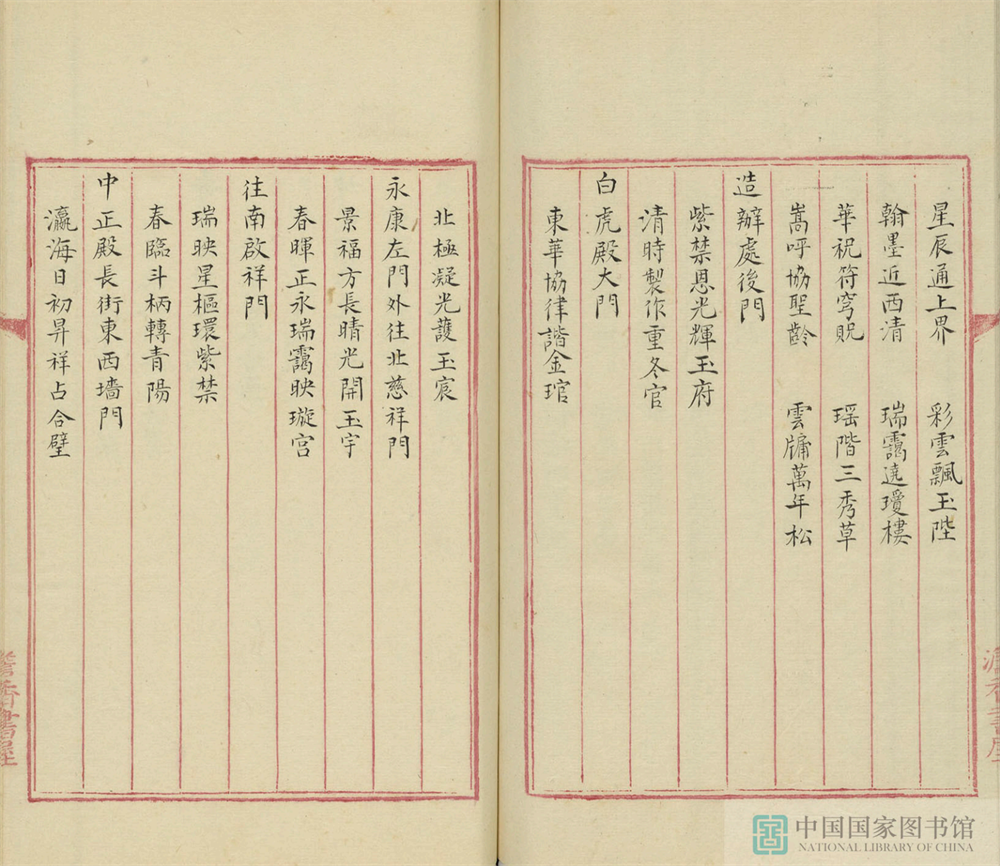 星辰通上界　彩雲飄玉陛
翰墨近西清　瑞靄遶瓊樓
華祝符穹貺　瑶階三秀草
嵩呼協聖齡　雲牗萬年松
造辦處後門
紫禁恩光輝玉府
清時製作重冬官
白虎殿大門
東華協律諧金琯
北極凝光護玉宸
永康左門外往北慈祥門
景福方長晴光開玉宇
春暉正永瑞靄映璇宫
往南啟祥門
瑞映星樞環紫禁
春臨斗柄轉青陽
中正殿長街東西墻門
瀛海日初昇祥占合璧
書屋
中国国家图书馆
NATIONAL LIBRARY OF CHINA